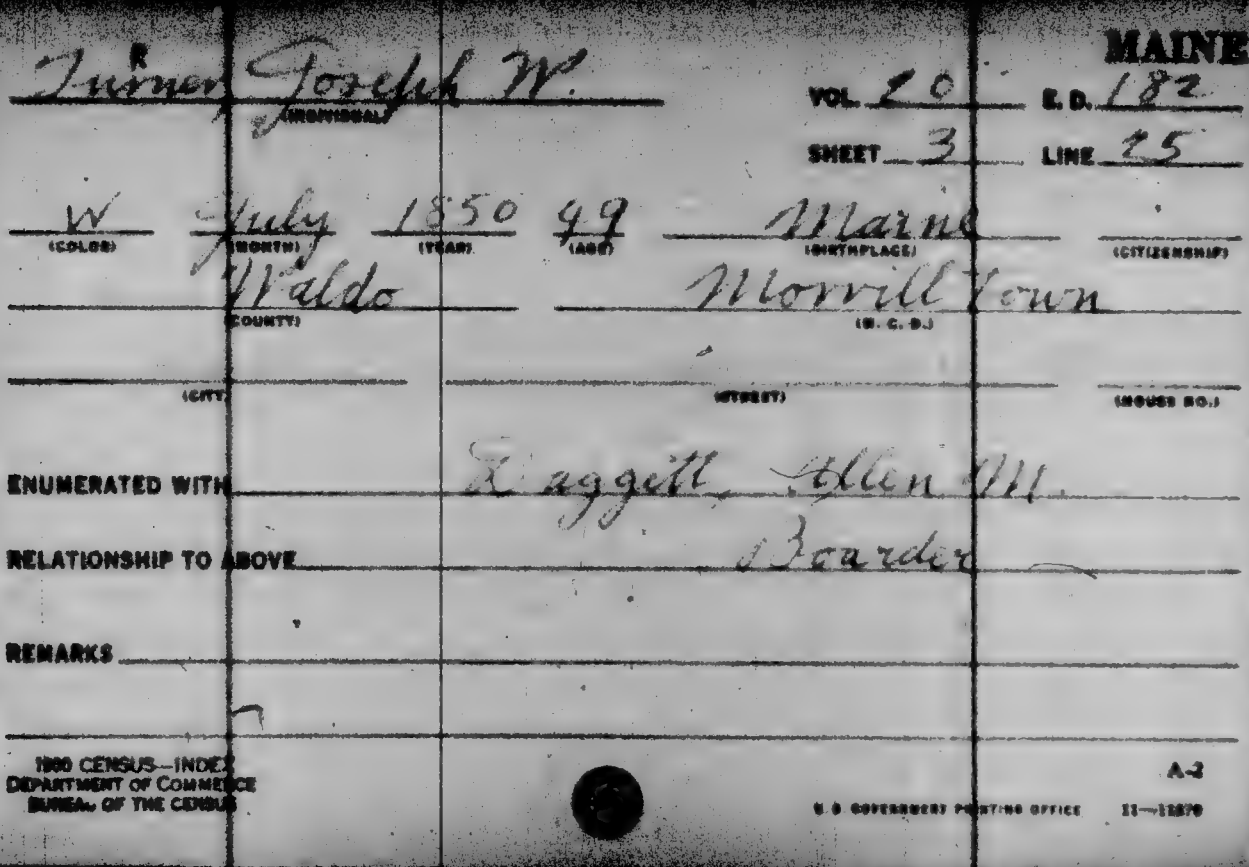 MAINE
R
Turner, Joseph W.
(INDIVIDUAL)
VOL. 20 E. D. 182
SHEET 3 LINE 25
W July 1850 49 Maine
(COLOR) (MONTH) (YEAR) (AGE) (BIRTHPLACE) (CITIZENSHIP)
Waldo Morrill Town
(COUNTY) (M. C. D.)
(CITY) (STREET) (HOUSE NO.)
ENUMERATED WITH Daggett, Allen M.
RELATIONSHIP TO ABOVE Boarder
REMARKS
1900 CENSUS—INDEX
DEPARTMENT OF COMMERCE
BUREAU OF THE CENSUS
A-2
U. S. GOVERNMENT PRINTING OFFICE